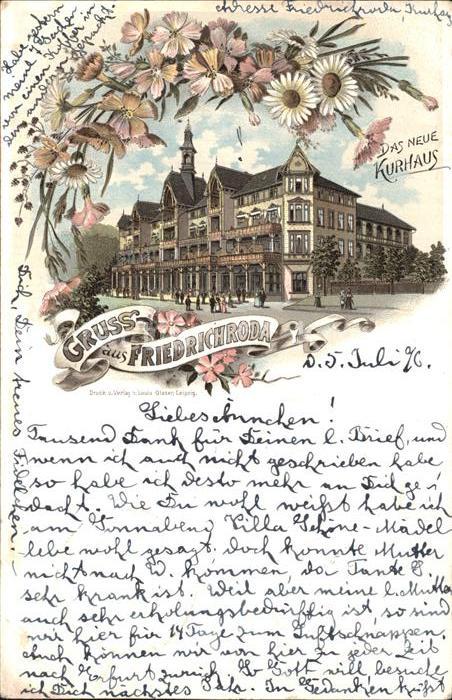 Adresse Friedrichroda, Kurhaus
Habe gestern
meine
DAS NEUE
KURHAUS
GRUSS
aus FRIEDRICHRODA
Druck u. Verlag v. Louis Glaser, Leipzig.
D. 5. Juli 96.
Liebes Ännchen!
Tausend Dank für Deinen l. Brief, und
wenn ich auch nicht geschrieben habe
so habe ich desto mehr an Dich ge-
dacht. Wie Du wohl weißt habe ich
am Sonnabend Villa Schöne-Mädel
lebe wohl gesagt. doch konnte Mutter
nicht nach W. kommen, da Tante E.
sehr krank ist. Weil aber meine l. Mutter
auch sehr erholungsbedürftig ist, so sind
wir hier für 14 Tage zum Luftschnappen.
Auch können wir von hier zu jeder Zeit
nach Erfurt zurück. So Gott will besuche
ich Dich nächstes Jahr. In Gedanken küßt
Dich, Dein treues Fidelchen.